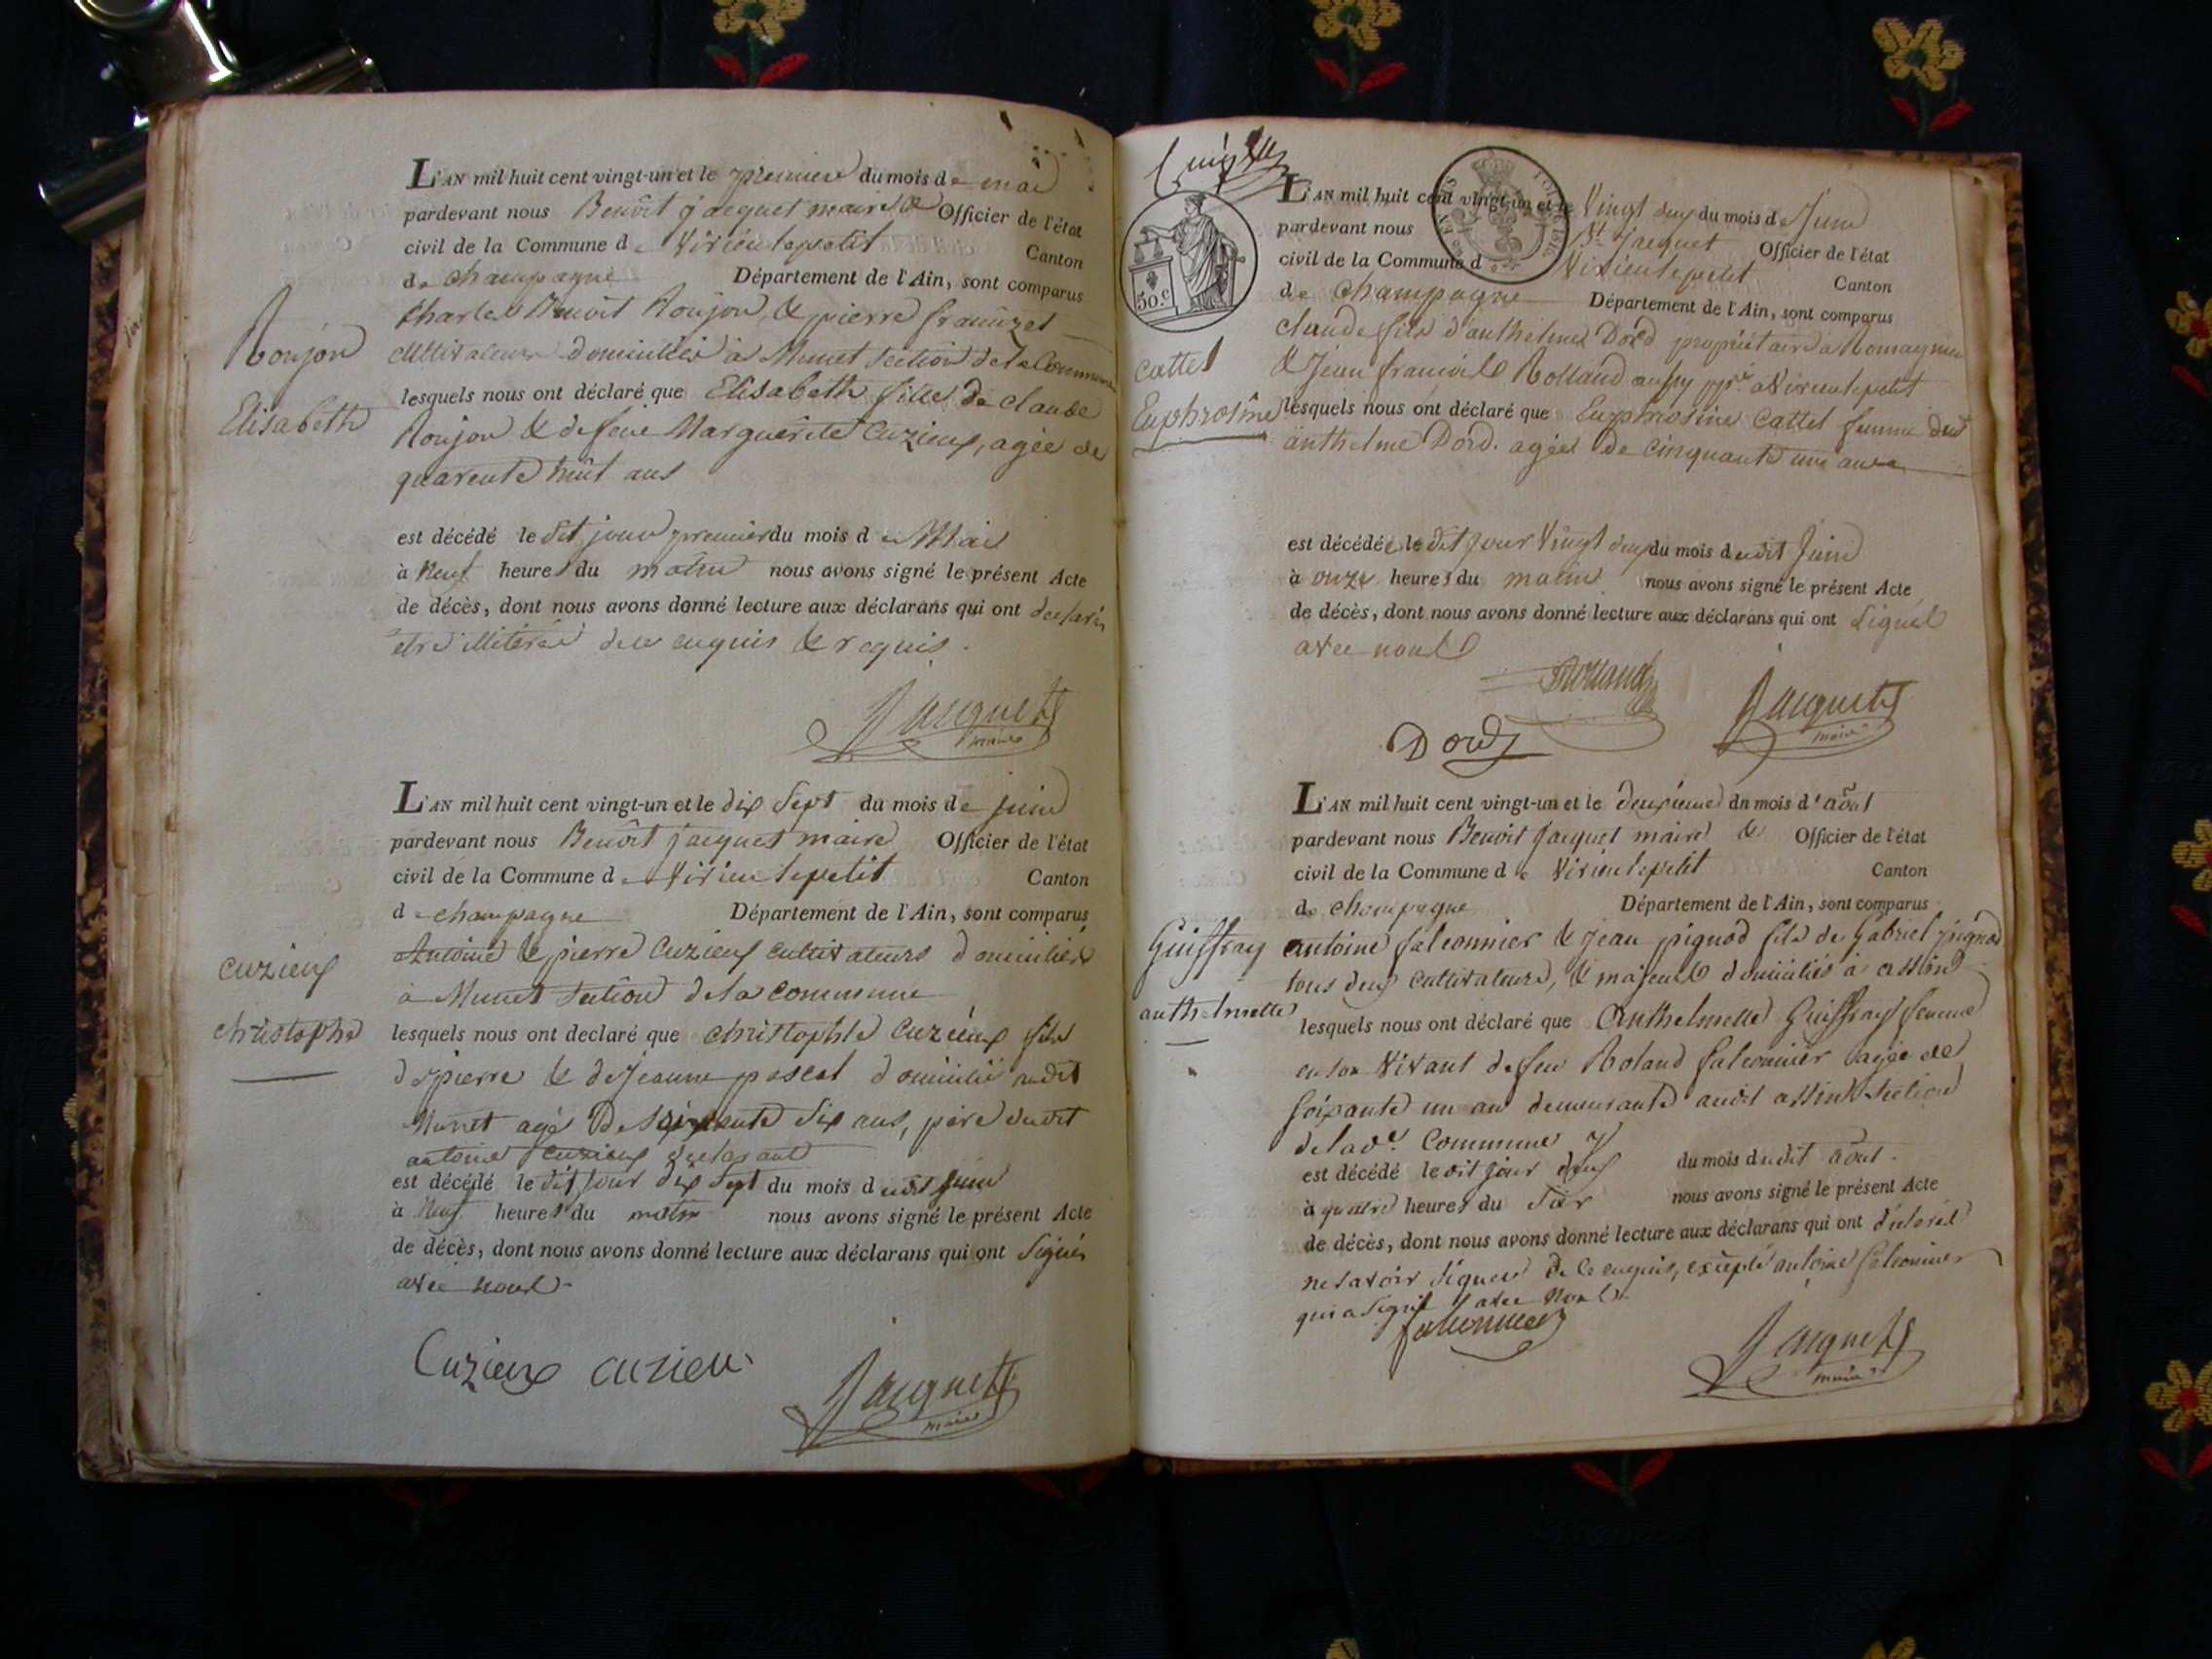 L'AN mil huit cent vingt-un et le premier du mois de mai
pardevant nous Benoît jacquet maire & Officier de l'état
civil de la Commune de Virieulepetit Canton
de champagne Département de l'Ain, sont comparus
Charles Benoît Roujon & pierre
cultivateurs domiciliés à Munet section de la Commune
lesquels nous ont déclaré que Elisabeth fille de claude
Roujon & de feue Marguerite Cuzieux, agée de
quarente huit ans
est décédé le dit jour premier du mois de Mai
à Neuf heures du matin nous avons signé le présent Acte
de décès, dont nous avons donné lecture aux déclarans qui ont declarés
etre illitérés de ce enquis & requis.
Jacquet
maire
Roujon
Elisabeth
L'AN mil huit cent vingt-un et le dix sept du mois de juin
pardevant nous Benoît jacquet maire Officier de l'état
civil de la Commune de Virieu lepetit Canton
de champagne Département de l'Ain, sont comparus
Antoine & pierre Cuzieux cultivateurs domiciliés
à Munet section de la commune
lesquels nous ont declaré que christophle Cuzieux fils
de pierre & de Jeanne pascal domicilié audit
Munet agé de soixante six ans, père dudit
antoine Cuzieux declarant
est décédé le dit jour dix sept du mois dudit juin
à Neuf heures du matin nous avons signé le présent Acte
de décès, dont nous avons donné lecture aux déclarans qui ont signés
avec nous.
Cuzieux cuzieu
Jacquet
maire
cuzieux
christophe
L'AN mil huit cent vingt-un et le Vingt deux du mois de Juin
pardevant nous Bt Jacquet Officier de l'état
civil de la Commune d Virieulepetit Canton
de Champagne Département de l'Ain, sont comparus
claude fils d'anthelme Dord propriétaire à Romagnieu
& Jean francois Rolland aussy pre a Virieulepetit
lesquels nous ont déclaré que Euphrosine Cattel femme dudt
anthelme Dord. agée de cinquante une ans
est décédée le dit jour Vingt deux du mois dudit Juin
à onze heures du matin nous avons signé le présent Acte
de décès, dont nous avons donné lecture aux déclarans qui ont signés
avec nous
Rolland
Jacquet
maire
Dord
50.c
cattel
Euphrosine
L'AN mil huit cent vingt-un et le deuxieme du mois d'aout
pardevant nous Benoit Jacquet maire & Officier de l'état
civil de la Commune de Virieulepetit Canton
de champagne Département de l'Ain, sont comparus
antoine falconnier & Jean pignod fils de Gabriel pignod
tous deux cultivateurs, & majeurs domiciliés à assin
lesquels nous ont déclaré que Anthelmette Guiffray femme
en son Vivant de feu Roland falconnier agée de
soixante un an demeurante audit assin section
de la de. Commune
est décédé le dit jour deux du mois dudit aout.
à quatre heures du soir nous avons signé le présent Acte
de décès, dont nous avons donné lecture aux déclarans qui ont déclarés
ne savoir signer de ce enquis, excepté antoine falconnier
qui a signé avec nous.
falconnier
Jacquet
maire
Guiffray
anthelmette